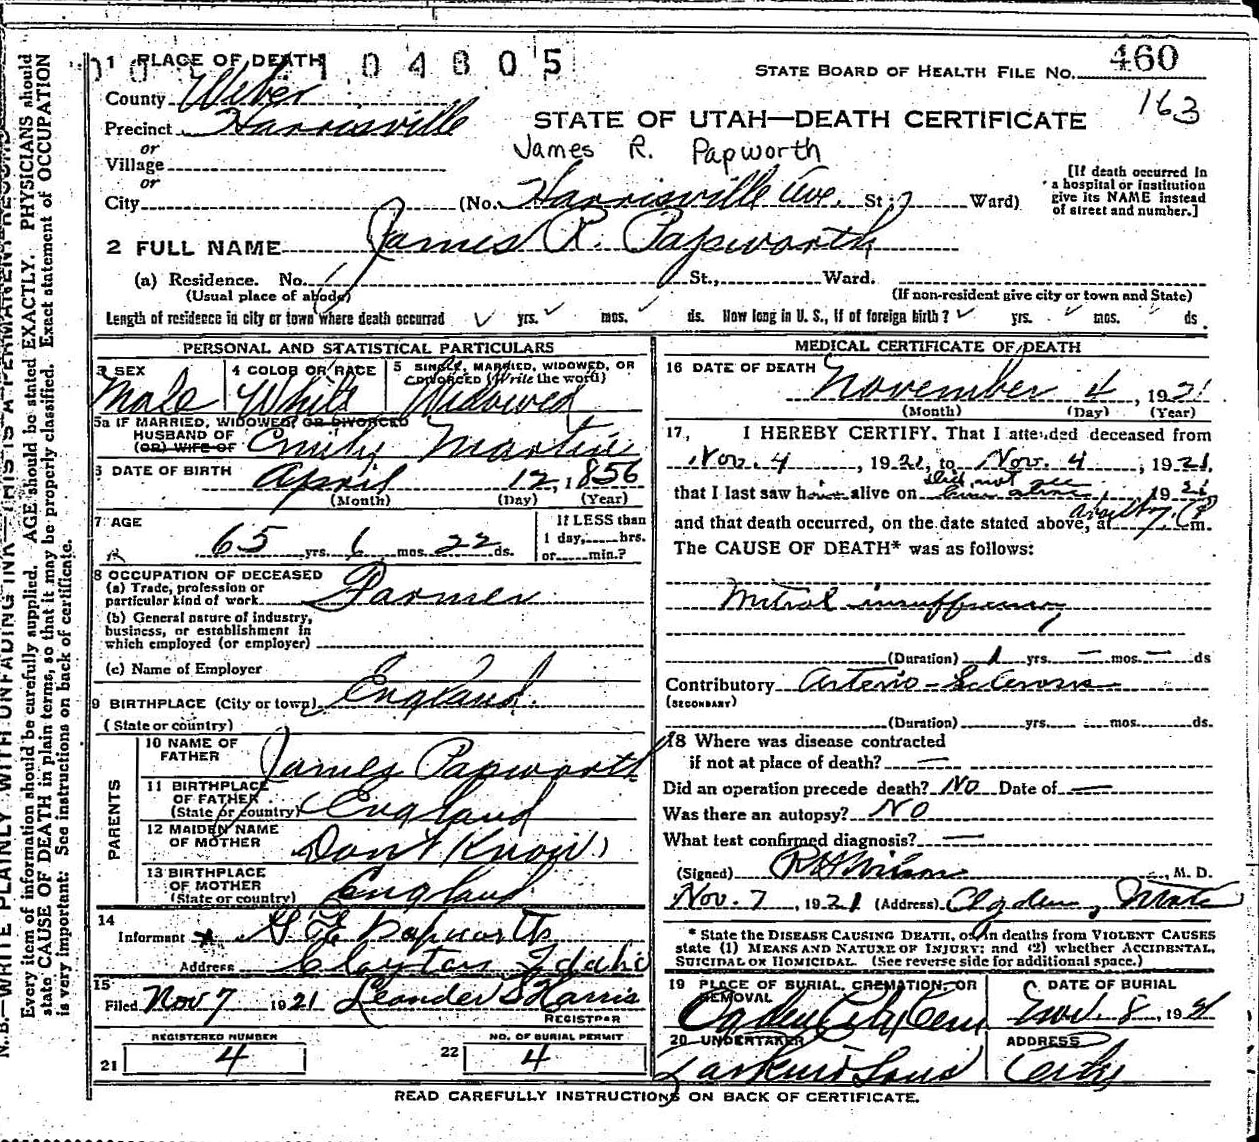 1 PLACE OF DEATH 104805
STATE BOARD OF HEALTH FILE No. 460
163
County Weber
Precinct Harrisville
STATE OF UTAH—DEATH CERTIFICATE
or
James R. Papworth
Village
or
City (No. Harrisville Ave. St; Ward)
[If death occurred in
a hospital or institution
give its NAME instead
of street and number.]
2 FULL NAME James R. Papworth
(a) Residence. No. St., Ward.
(Usual place of abode) (If non-resident give city or town and State)
Length of residence in city or town where death occurred yrs. mos. ds. How long in U. S., if of foreign birth? yrs. mos. ds.
PERSONAL AND STATISTICAL PARTICULARS
3 SEX 4 COLOR OR RACE 5 SINGLE, MARRIED, WIDOWED, OR
DIVORCED (Write the word)
Male White Widowed
5a IF MARRIED, WIDOWED, OR DIVORCED
HUSBAND OF
(OR) WIFE OF Emily Martin
6 DATE OF BIRTH April 12, 1856
(Month) (Day) (Year)
7 AGE 65 yrs. 6 mos. 22 ds.
If LESS than
1 day, hrs.
or min.?
8 OCCUPATION OF DECEASED
(a) Trade, profession or
particular kind of work Farmer
(b) General nature of industry,
business, or establishment in
which employed (or employer)
(c) Name of Employer
9 BIRTHPLACE (City or town) England.
(State or country)
PARENTS
10 NAME OF
FATHER James Papworth
11 BIRTHPLACE
OF FATHER
(State or country) England
12 MAIDEN NAME
OF MOTHER Don't Know
13 BIRTHPLACE
OF MOTHER
(State or country) England
14
Informant Papworth
Address Clayton Idaho
15
Filed Nov 7 1921 Leander S Harris
REGISTRAR
REGISTERED NUMBER NO. OF BURIAL PERMIT
21 4 22 4
MEDICAL CERTIFICATE OF DEATH
16 DATE OF DEATH November 4, 1921
(Month) (Day) (Year)
17, I HEREBY CERTIFY, That I attended deceased from
Nov. 4, 1921, to Nov. 4, 1921,
did not see
that I last saw him alive on him alive, 1921,
and that death occurred, on the date stated above, at 7 P m.
The CAUSE OF DEATH* was as follows:
Mitral insufficiency
(Duration) 1 yrs. — mos. — ds
Contributory Arterio-Sclerosis
(SECONDARY)
(Duration) yrs. mos. ds.
18 Where was disease contracted
if not at place of death? —
Did an operation precede death? NO Date of —
Was there an autopsy? NO
What test confirmed diagnosis? —
(Signed) , M. D.
Nov. 7, 1921 (Address) Ogden, Utah
* State the DISEASE CAUSING DEATH, or in deaths from VIOLENT CAUSES
state (1) MEANS AND NATURE OF INJURY; and (2) whether ACCIDENTAL,
SUICIDAL OR HOMICIDAL. (See reverse side for additional space.)
19 PLACE OF BURIAL, CREMATION, OR
REMOVAL DATE OF BURIAL
Ogden City Cem Nov. 8, 1921
20 UNDERTAKER ADDRESS
Larkin & Sons City
READ CAREFULLY INSTRUCTIONS ON BACK OF CERTIFICATE.
N. B.—WRITE PLAINLY WITH UNFADING INK—THIS IS A PERMANENT RECORD
Every item of information should be carefully supplied. AGE should be stated EXACTLY. PHYSICIANS should
state CAUSE OF DEATH in plain terms, so that it may be properly classified. Exact statement of OCCUPATION
is very important. See instructions on back of certificate.